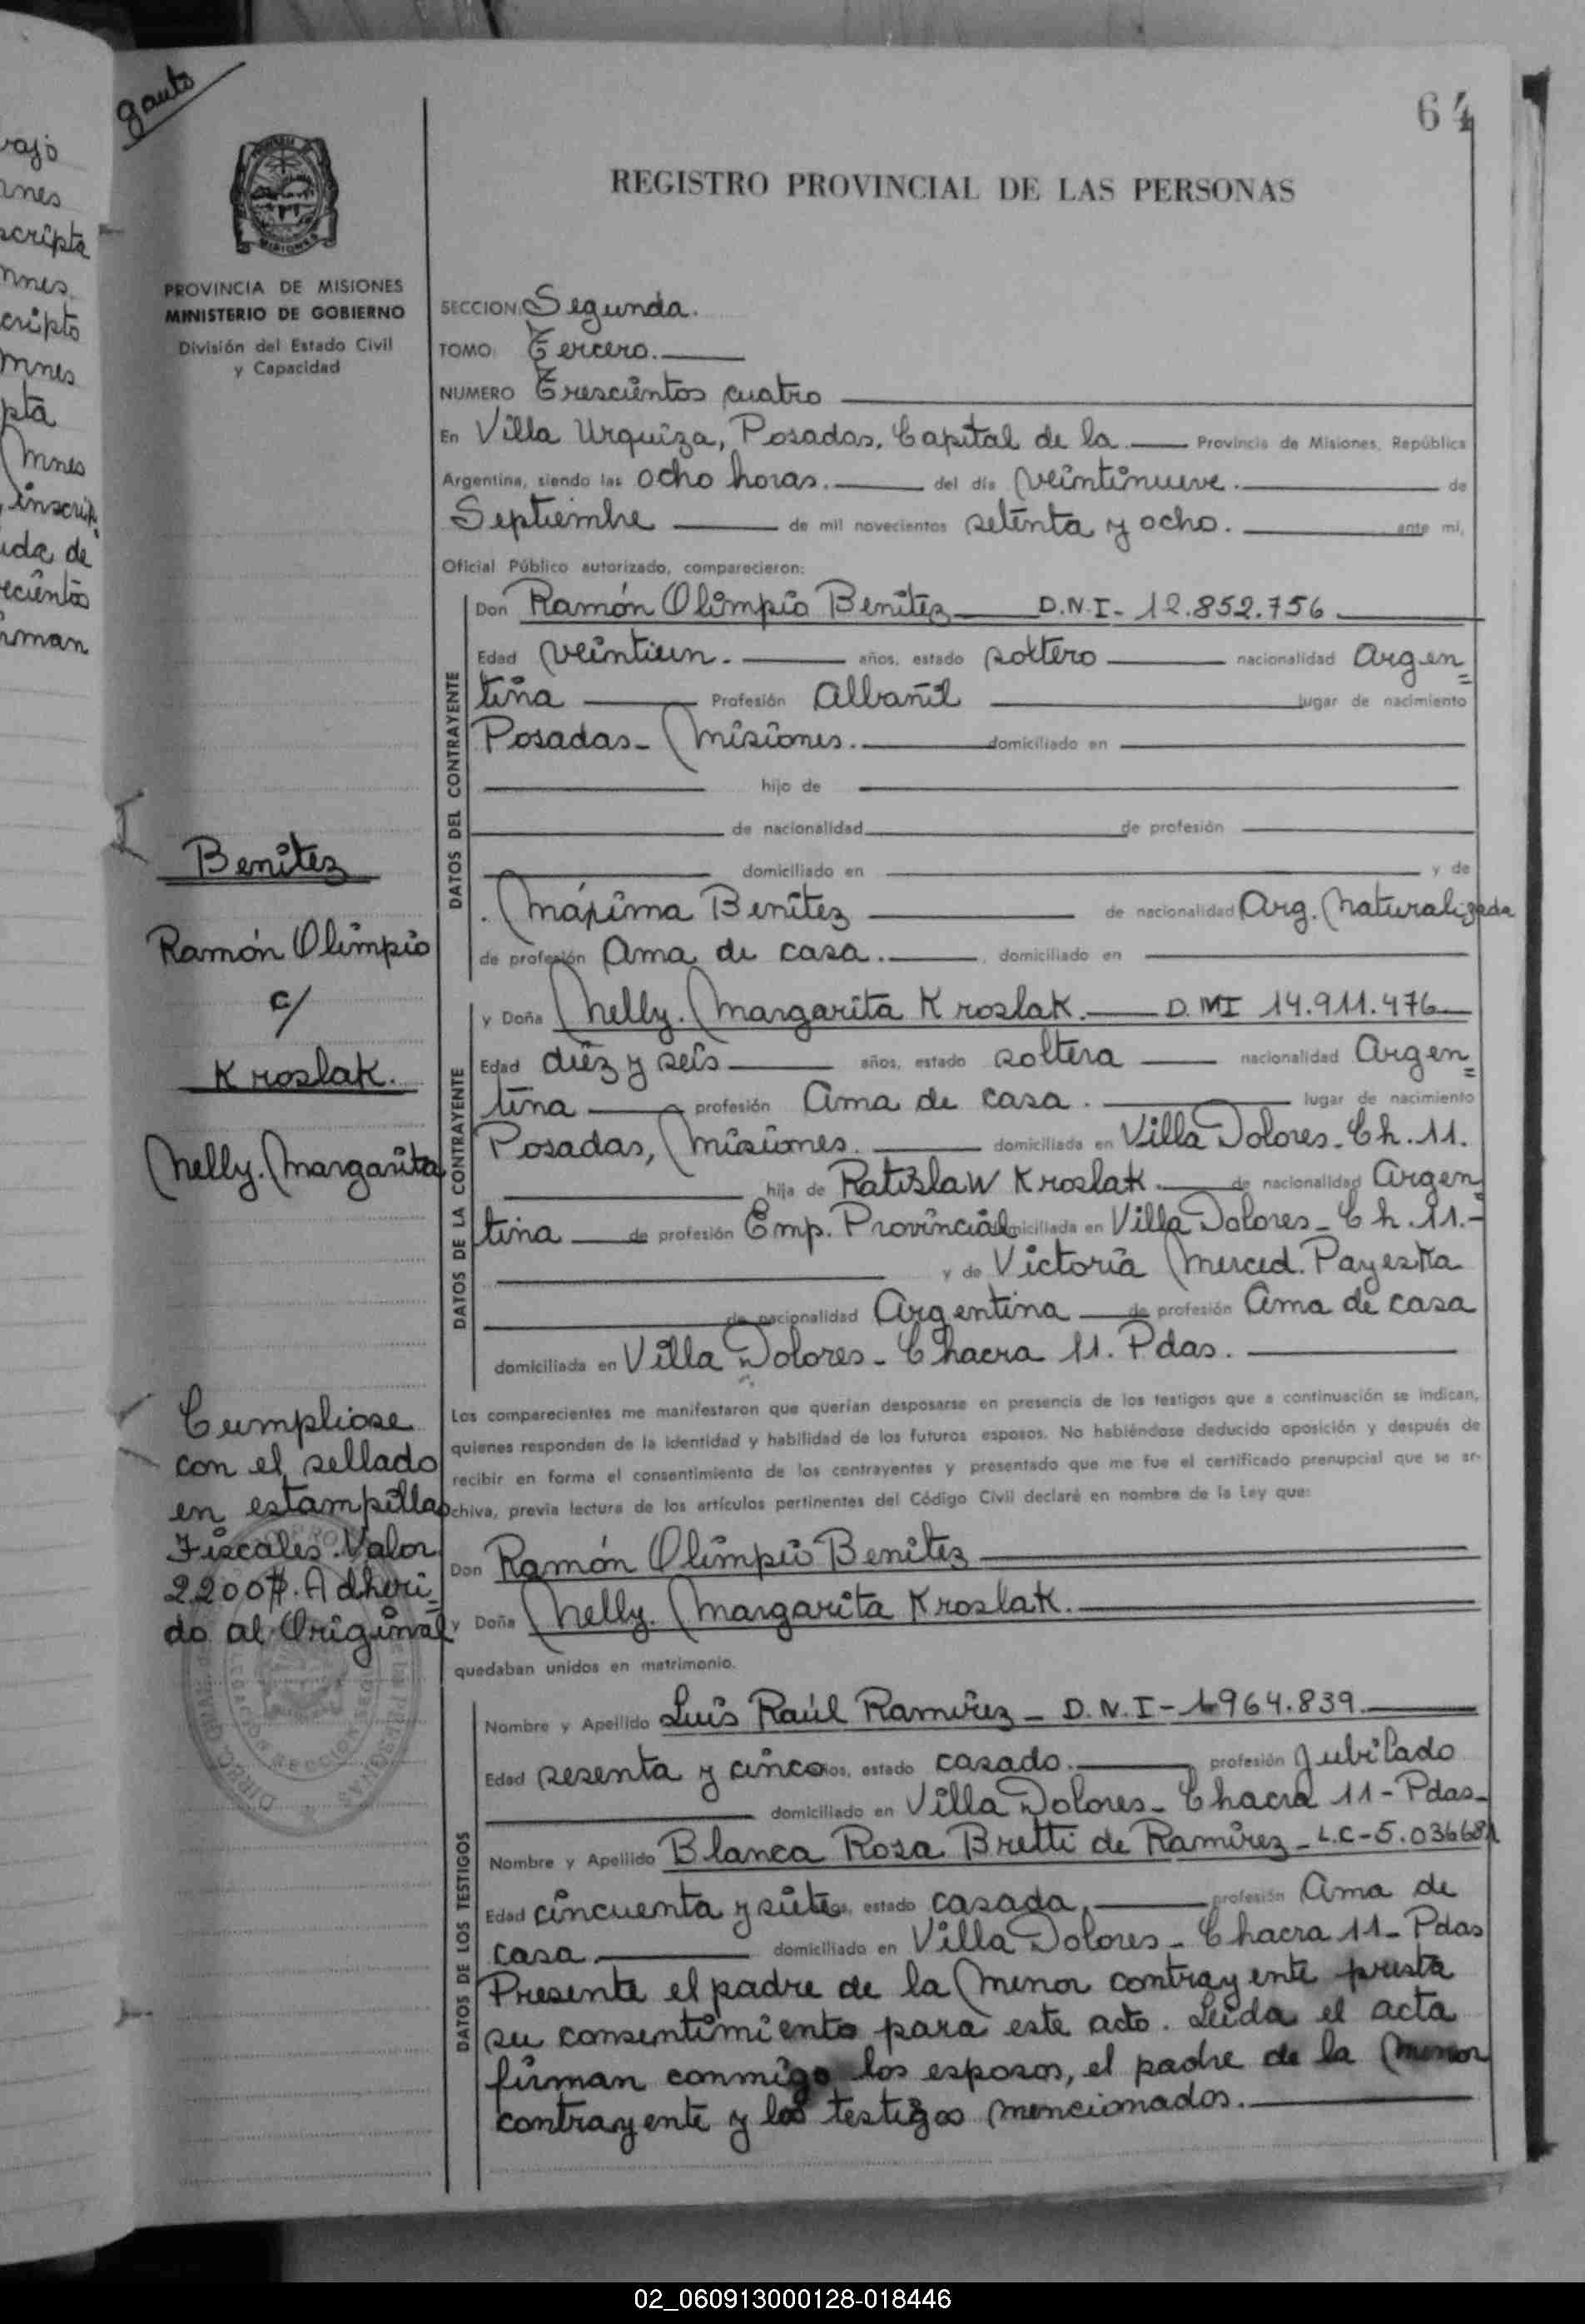 64
REGISTRO PROVINCIAL DE LAS PERSONAS
MISIONES
PROVINCIA DE MISIONES
MINISTERIO DE GOBIERNO
División del Estado Civil
y Capacidad
SECCION Segunda.
TOMO Tercero.
NUMERO Trescientos cuatro
En Villa Urquiza, Posadas, Capital de la Provincia de Misiones, República
Argentina, siendo las ocho horas. del día veintinueve. de
Septiembre de mil novecientos setenta y ocho. ante mi,
Oficial Público autorizado, comparecieron:
DATOS DEL CONTRAYENTE
Don Ramón Olimpio Benitez D.N.I- 12.852.756
Edad veintiun. años, estado soltero nacionalidad Argen
tina Profesión Albañil lugar de nacimiento
Posadas- Misiones. domiciliado en
hijo de
de nacionalidad de profesión
domiciliado en y de
Máxima Benitez de nacionalidad Arg. Naturalizada
de profesión Ama de casa. domiciliado en
DATOS DE LA CONTRAYENTE
y Doña Nelly. Margarita Kroslak. D.NI 14.911.476
Edad diez y seis años, estado soltera nacionalidad Argen
tina profesión Ama de casa. lugar de nacimiento
Posadas, Misiones. domiciliada en Villa Dolores- Ch. 11.
hija de Ratislaw Kroslak. de nacionalidad Argen
tina de profesión Emp. Provincial domiciliada en Villa Dolores- Ch. 11.-
y de Victoria Merced. Payeska
de nacionalidad Argentina de profesión Ama de casa
domiciliada en Villa Dolores- Chacra 11. Pdas.
Los comparecientes me manifestaron que querían desposarse en presencia de los testigos que a continuación se indican,
quienes responden de la identidad y habilidad de los futuros esposos. No habiéndose deducido oposición y después de
recibir en forma el consentimiento de los contrayentes y presentado que me fue el certificado prenupcial que se ar-
chiva, previa lectura de los artículos pertinentes del Código Civil declaré en nombre de la Ley que:
Don Ramón Olimpio Benitez
y Doña Nelly. Margarita Kroslak.
quedaban unidos en matrimonio.
DATOS DE LOS TESTIGOS
Nombre y Apellido Luis Raúl Ramirez- D.N.I- 964.839.
Edad sesenta y cinco años, estado casado. profesión Jubilado
domiciliado en Villa Dolores- Chacra 11- Pdas-
Nombre y Apellido Blanca Rosa Bretti de Ramirez- L.C-5.036681
Edad cincuenta y siete años, estado casada, profesión Ama de
casa domiciliado en Villa Dolores- Chacra 11- Pdas
Presente el padre de la Menor contrayente presta
su consentimiento para este acto. Leida el acta
firman conmigo los esposos, el padre de la Menor
contrayente y los testigos mencionados.
Benitez
Ramón Olimpio
c/
Kroslak.
Nelly. Margarita
Cumpliose
con el sellado
en estampillas
Fiscales. Valor
2200$. Adheri
do al Original
02_060913000128-018446